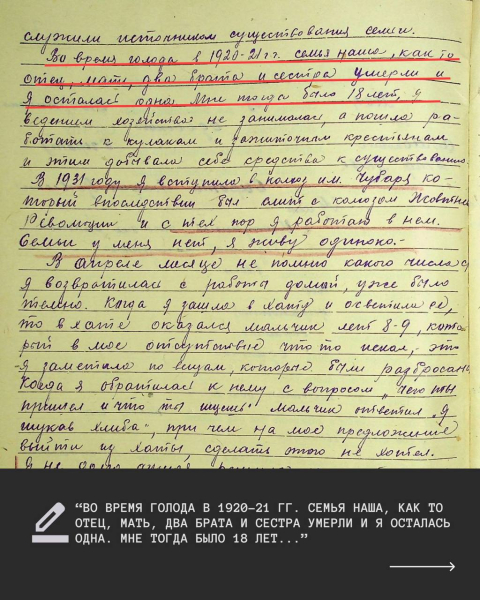 служили источником существования семьи.
Во время голода в 1920-21 гг. семья наша, как то
отец, мать, два брата и сестра умерли и
я осталась одна. Мне тогда было 18 лет, я
ведением хозяйства не занималась, а пошла ра-
ботать к кулакам и зажиточным крестьянам
и этим добывала себе средства к существованию.
В 1931 году я вступила в колхоз им. Чубаря ко-
торый впоследствии был слит с колхозом Жовтнева
Революция и с тех пор я работаю в нем.
Семьи у меня нет, я живу одиноко.-
В апреле месяце не помню какого числа
я возвратилась с работы домой, уже было
темно. Когда я зашла в хату и осветила ее,
то в хате оказался мальчик лет 8-9, кото-
рый в мое отсутствие что то искал,- это
я заметила по вещам, которые были разбросаны
Когда я обратилась к нему с вопросом "чего ты
пришел и что ты ищешь" мальчик ответил "я
шукав хлиба", при чем на мое предложение
выйти из хаты, сделать этого не хотел.
Я не
“ВО ВРЕМЯ ГОЛОДА В 1920–21 ГГ. СЕМЬЯ НАША, КАК ТО
ОТЕЦ, МАТЬ, ДВА БРАТА И СЕСТРА УМЕРЛИ И Я ОСТАЛАСЬ
ОДНА. МНЕ ТОГДА БЫЛО 18 ЛЕТ...”